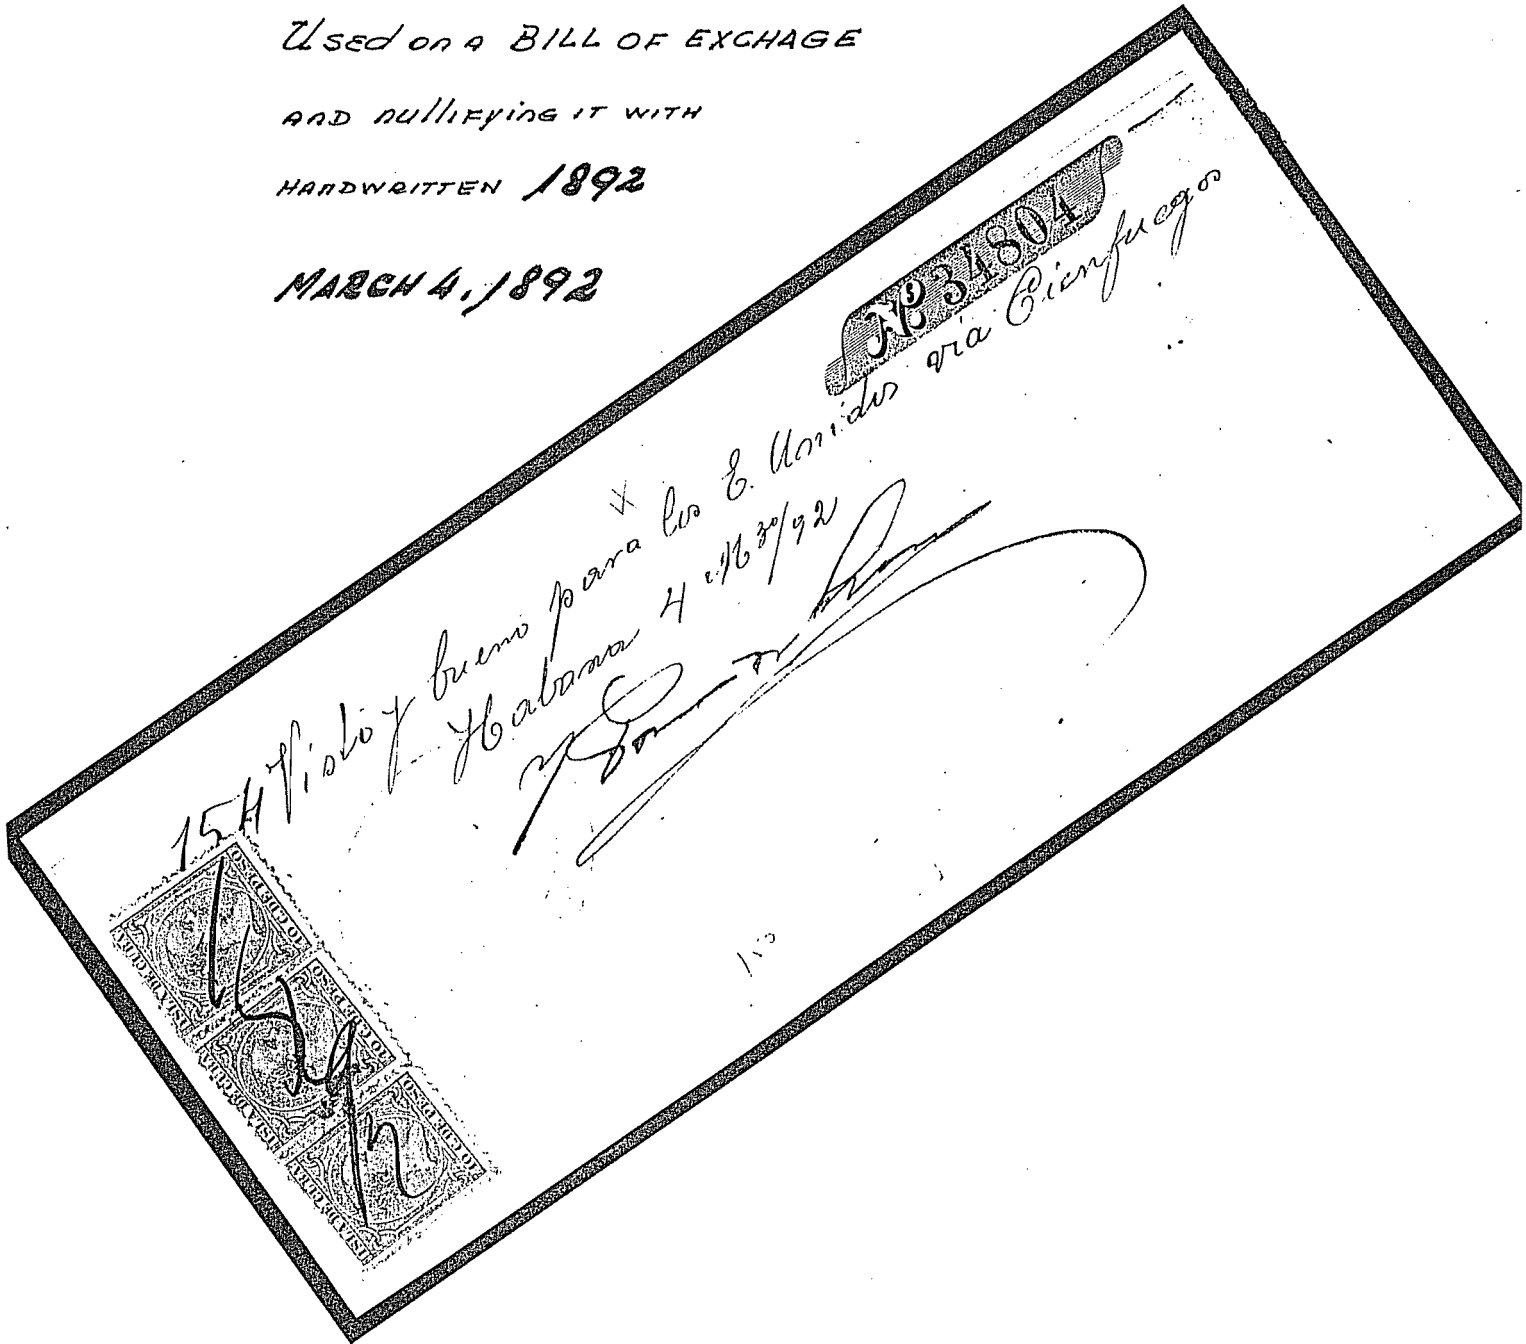 Used on a BILL OF EXCHAGE
AND nullifying it with
HANDWRITTEN 1892
MARCH 4, 1892
Nº 34804
154 Visto y bueno para los E. Unidos via Cienfuegos
Habana 4 M30/92
1892
10 C. DE PESO
ISLA DE CUBA
10 C. DE PESO
ISLA DE CUBA
10 C. DE PESO
ISLA DE CUBA